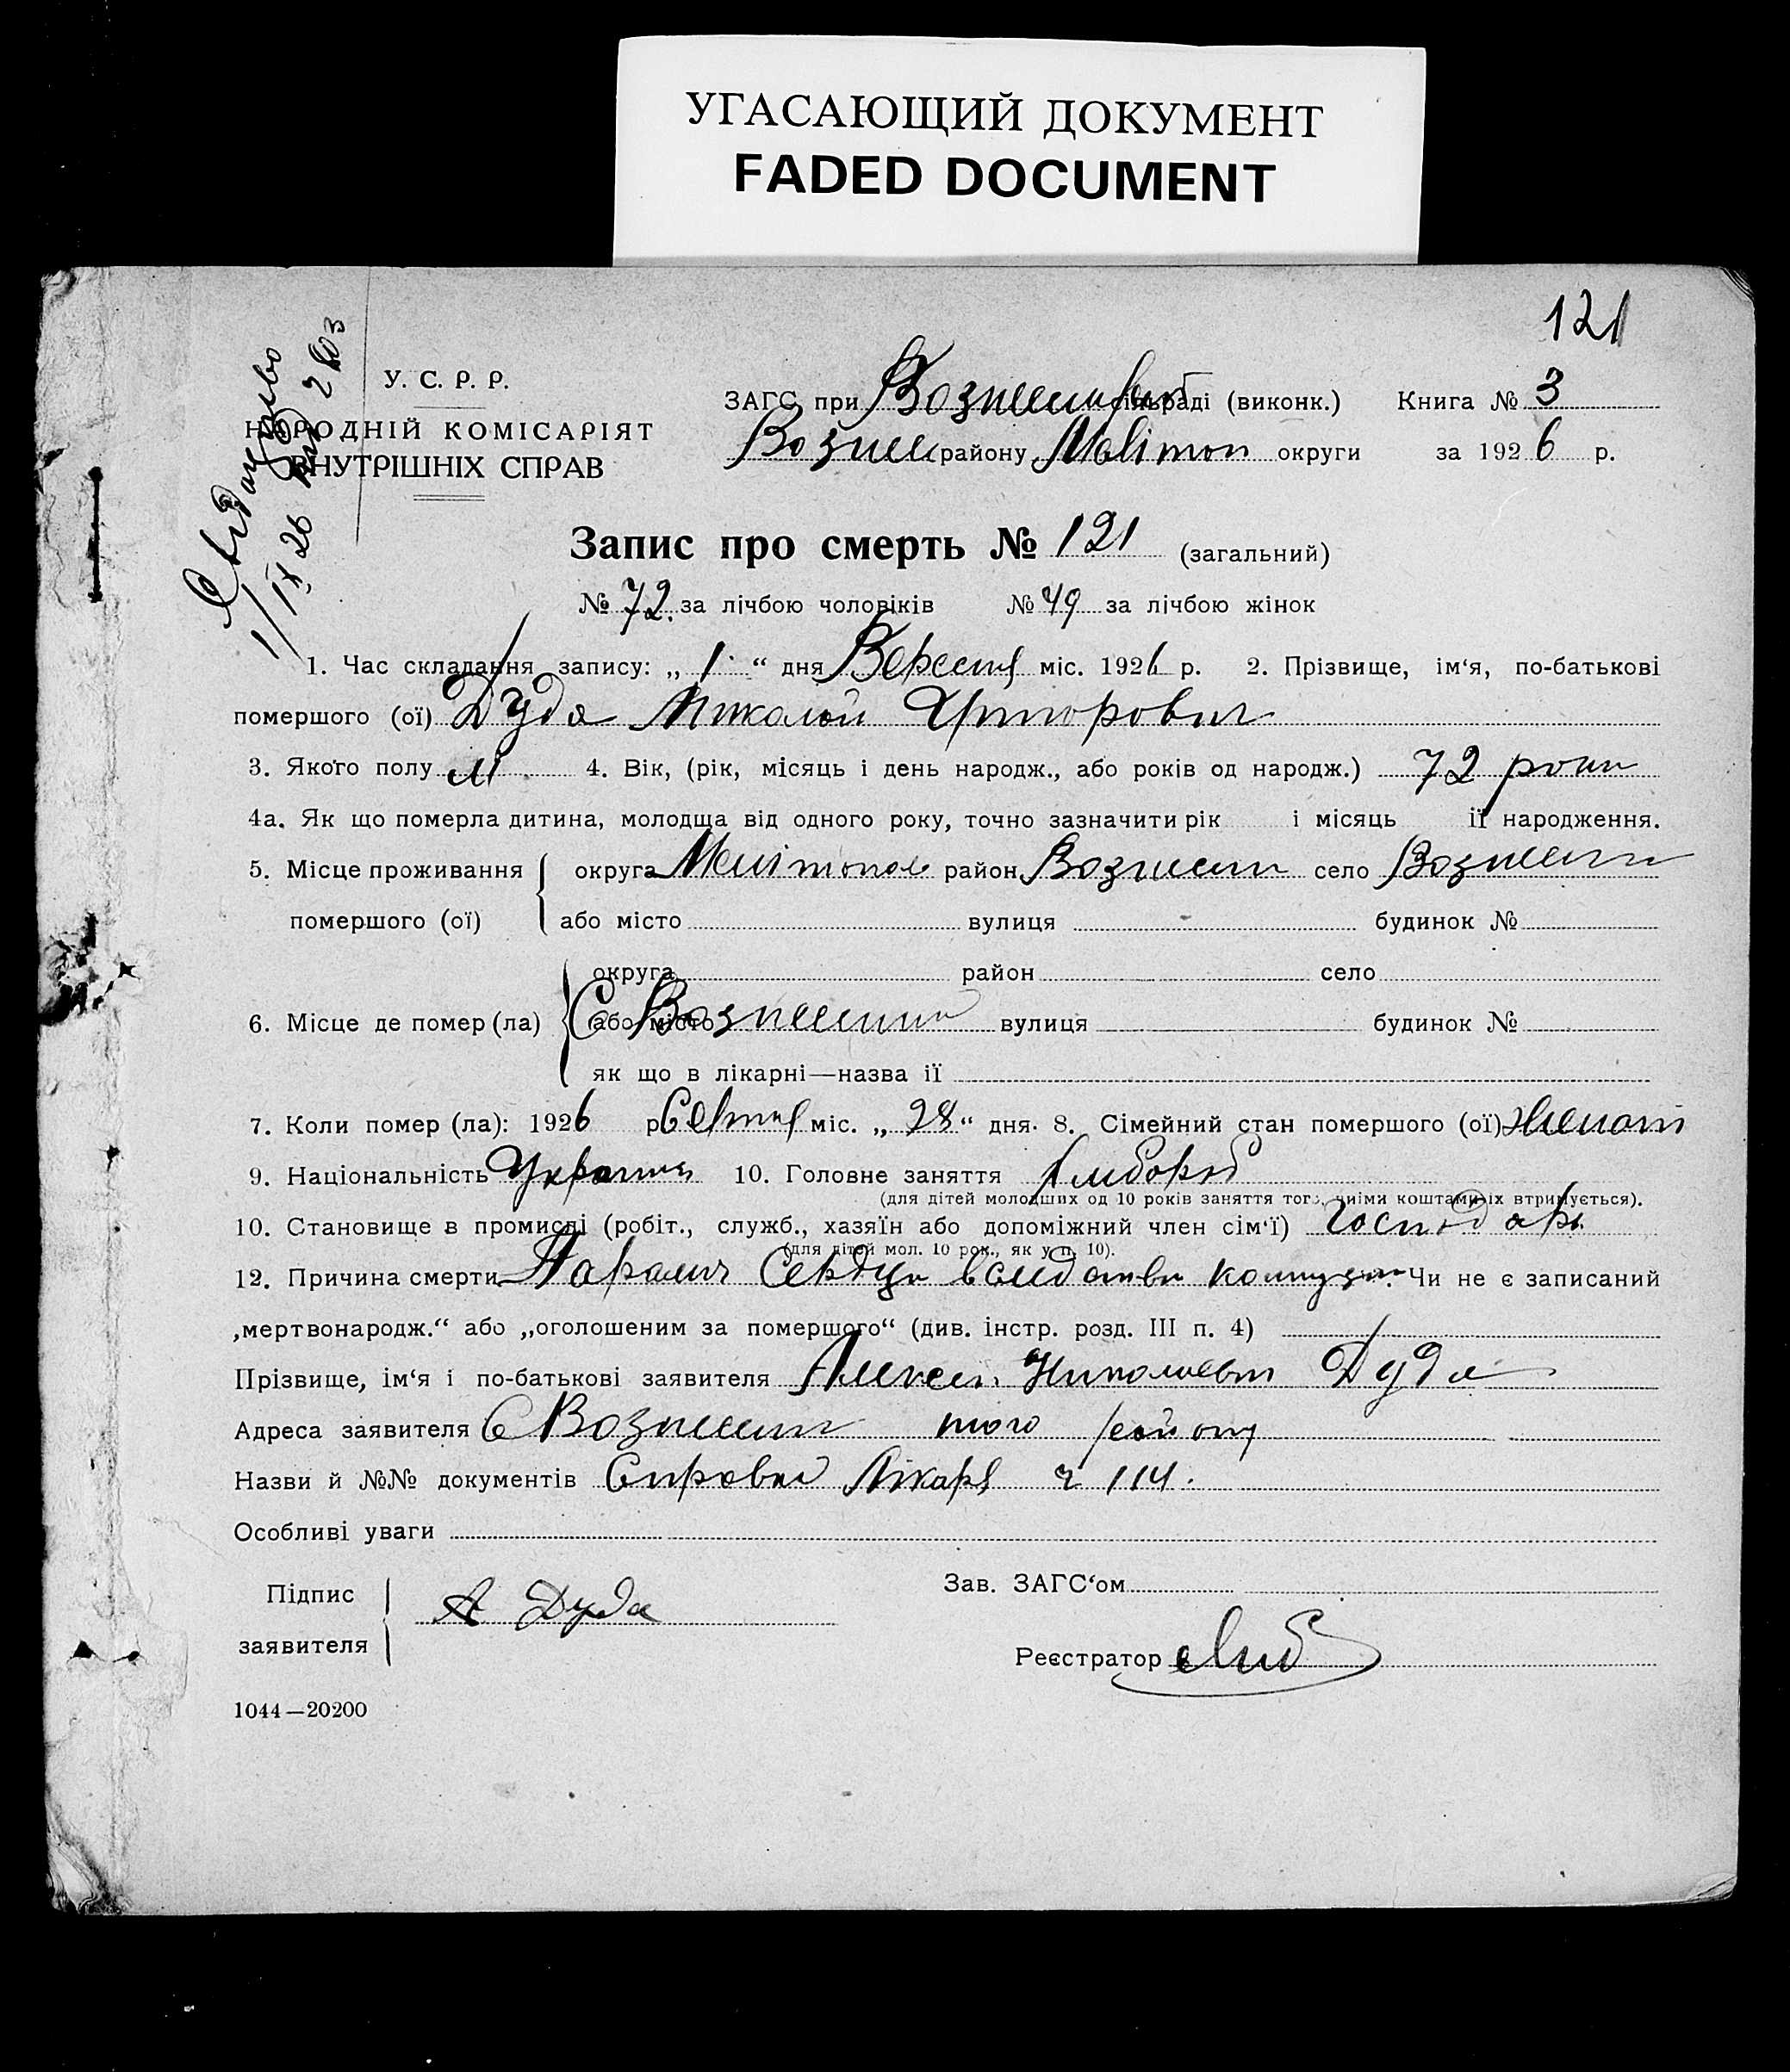 УГАСАЮЩИЙ ДОКУМЕНТ
FADED DOCUMENT
121
У. С. Р. Р.
НАРОДНІЙ КОМІСАРІЯТ
ВНУТРІШНІХ СПРАВ
ЗАГС при сільраді (виконк.) Книга № 3
Вознес району Мелітоп округи за 1926 р.
Запис про смерть № 121 (загальний)
№ 72. за лічбою чоловіків № 49 за лічбою жінок
1. Час складання запису: „ 1 “ дня Вересня міс. 1926 р. 2. Прізвище, ім‘я, по-батькові
помершого (ої) Дуда Миколай Григорович
3. Якого полу м. 4. Вік, (рік, місяць і день народж., або років од народж.) 72 роки
4а. Як що померла дитина, молодща від одного року, точно зазначити рік і місяць її народження.
5. Місце проживання округа Мелітополь район Вознесен село Вознесен
помершого (ої) або місто вулиця будинок №
округа район село
6. Місце де помер (ла) або місто С Вознесенка вулиця будинок №
як що в лікарні—назва її
7. Коли помер (ла): 1926 р. міс. „ 28 “ дня. 8. Сімейний стан помершого (ої) женат
9. Національність Україн 10. Головне заняття хлібороб
(для дітей молодших од 10 років заняття того, чиїми коштами їх втримується).
10. Становище в промислі (робіт., служб., хазяїн або допоміжний член сім‘ї) господарь
(для дітей мол. 10 рок., як у п. 10).
12. Причина смерти Паралич Сердця вследствви Чи не є записаний
„мертвонародж.“ або „оголошеним за помершого“ (див. інстр. розд. III п. 4)
Прізвище, ім‘я і по-батькові заявителя Алексей Николаевич Дуда
Адреса заявителя С Вознесен того району
Назви й №№ документів Справка Лікаря ч 114.
Особливі уваги
Підпис
заявителя А Дуда
Зав. ЗАГС‘ом
Реєстратор
1044—20200